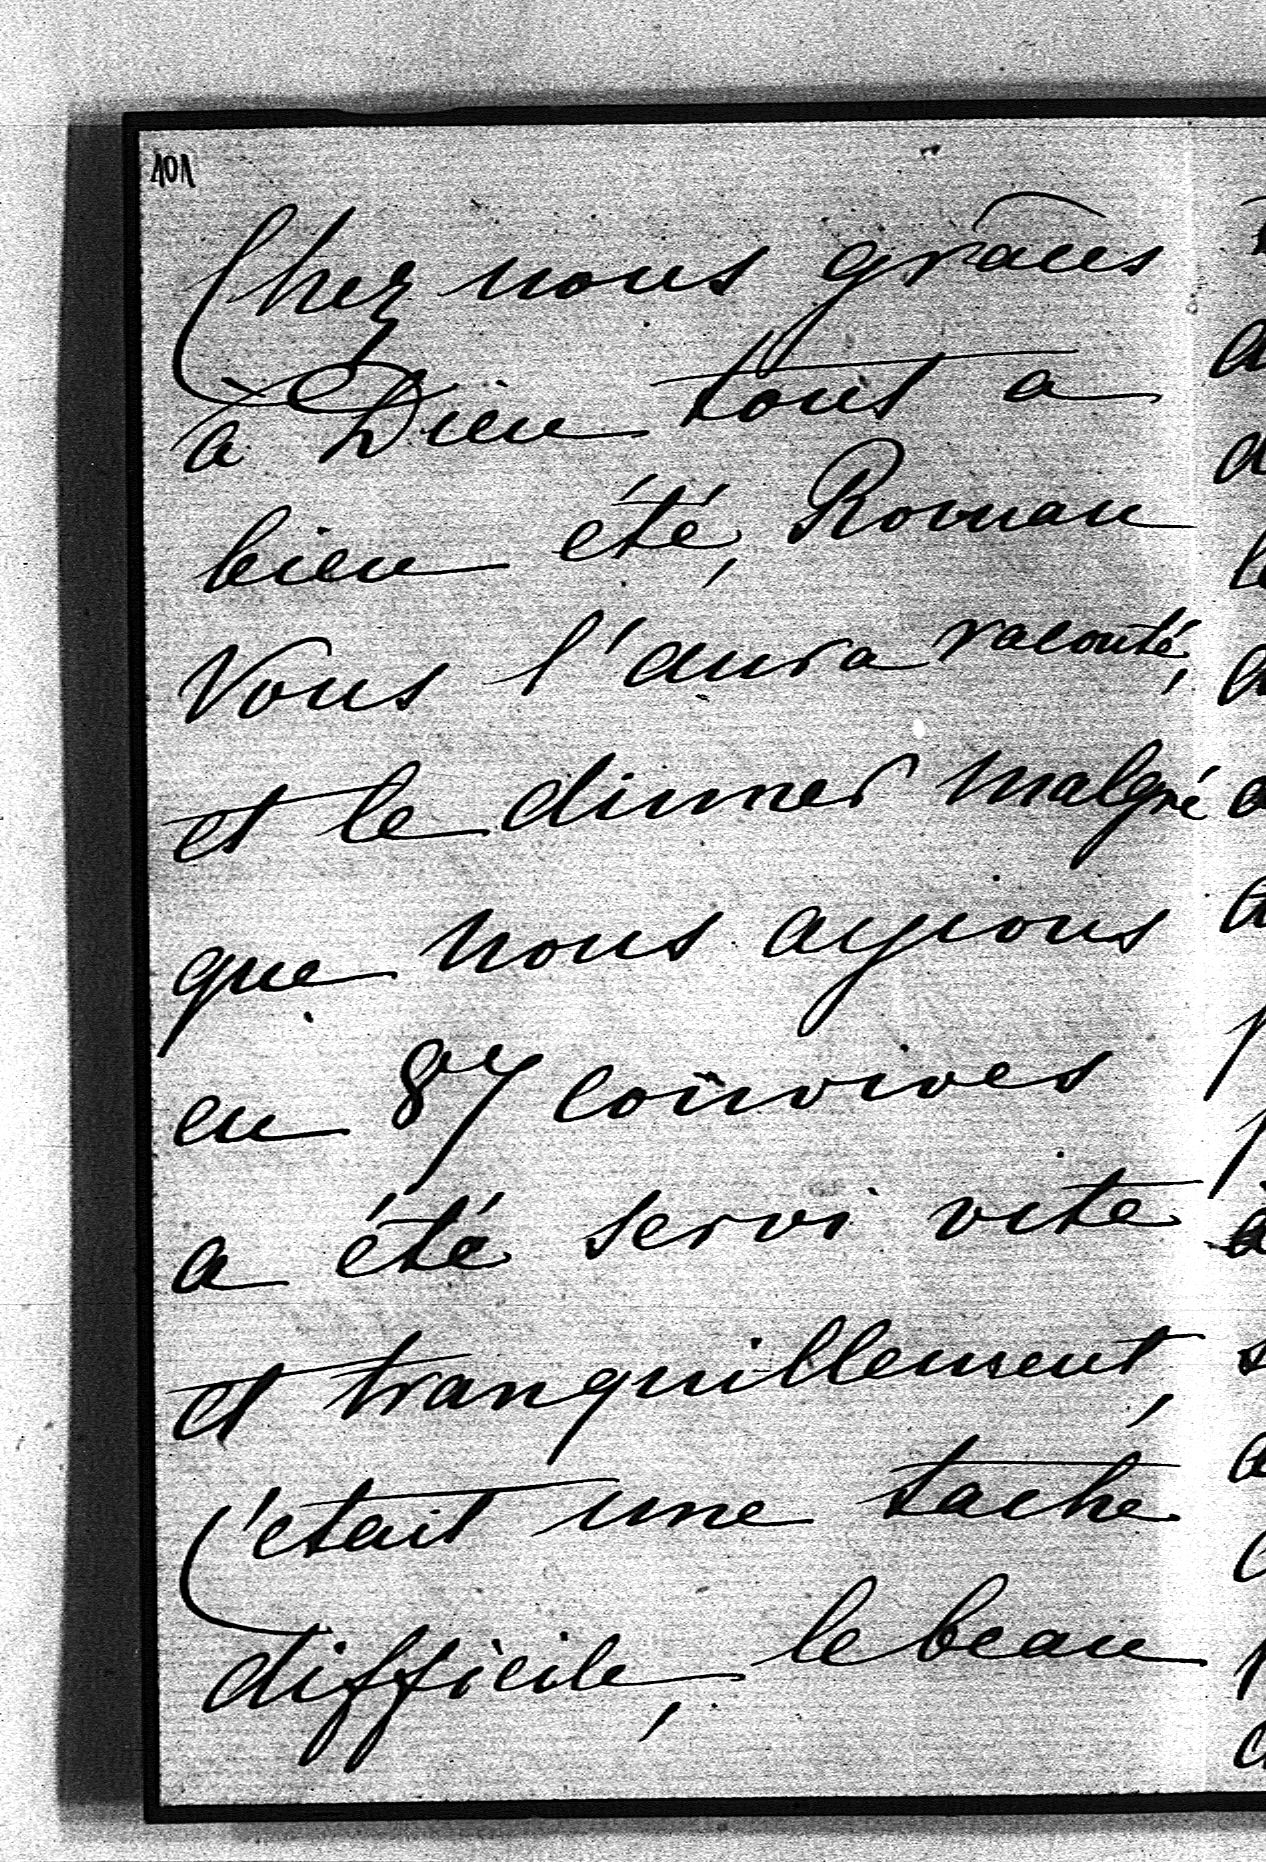 101
Chez nous grâces
à Dieu tout a
bien été, Roman
Vous l'aura raconté,
et le dinner malgré
que nous ayions
eu 87 convives
a été servi vite
et tranquillement,
c'etait une tache
difficile, le beau